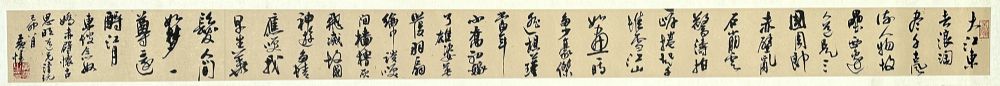 大江東
去浪淘
盡千古風
流人物故
壘西邊
人道是三
國周郎
赤壁亂
石崩雲
驚濤拍
岸捲起千
堆雪江山
如畫一時
多少豪傑
遙想公瑾
當年
小喬初嫁
了雄姿英
發羽扇
綸巾談笑
間檣櫓灰
飛煙滅故國
神遊多情
應笑我
早生華
髮人間
如夢一
尊還
酹江月
東坡念奴
嬌赤壁懷古